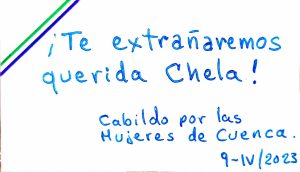 ¡Te extrañaremos
querida Chela!
Cabildo por las
Mujeres de Cuenca.
9-IV/2023